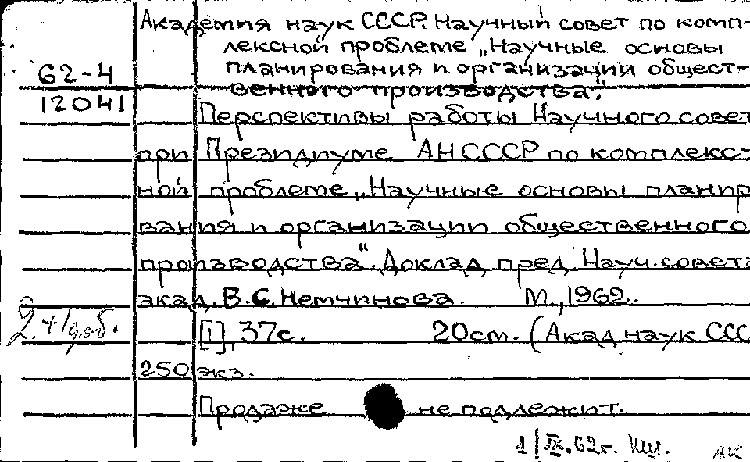 Академия наук СССР. Научный совет по комп-
лексной проблеме „Научные основы
62-4 планирования и организации общест-
12041 венного производства".
Перспективы работы Научного совета
при Президиуме АН СССР по комплекс-
ной проблеме „Научные основы планир
вания и организации общественного
производства". Доклад пред. Науч. совета
акад. В.С. Немчинова. М., 1962.
[1], 37с. 20см. (Акад. наук ССС
250 экз.
Продаже не подлежит.
1/IX.62г.